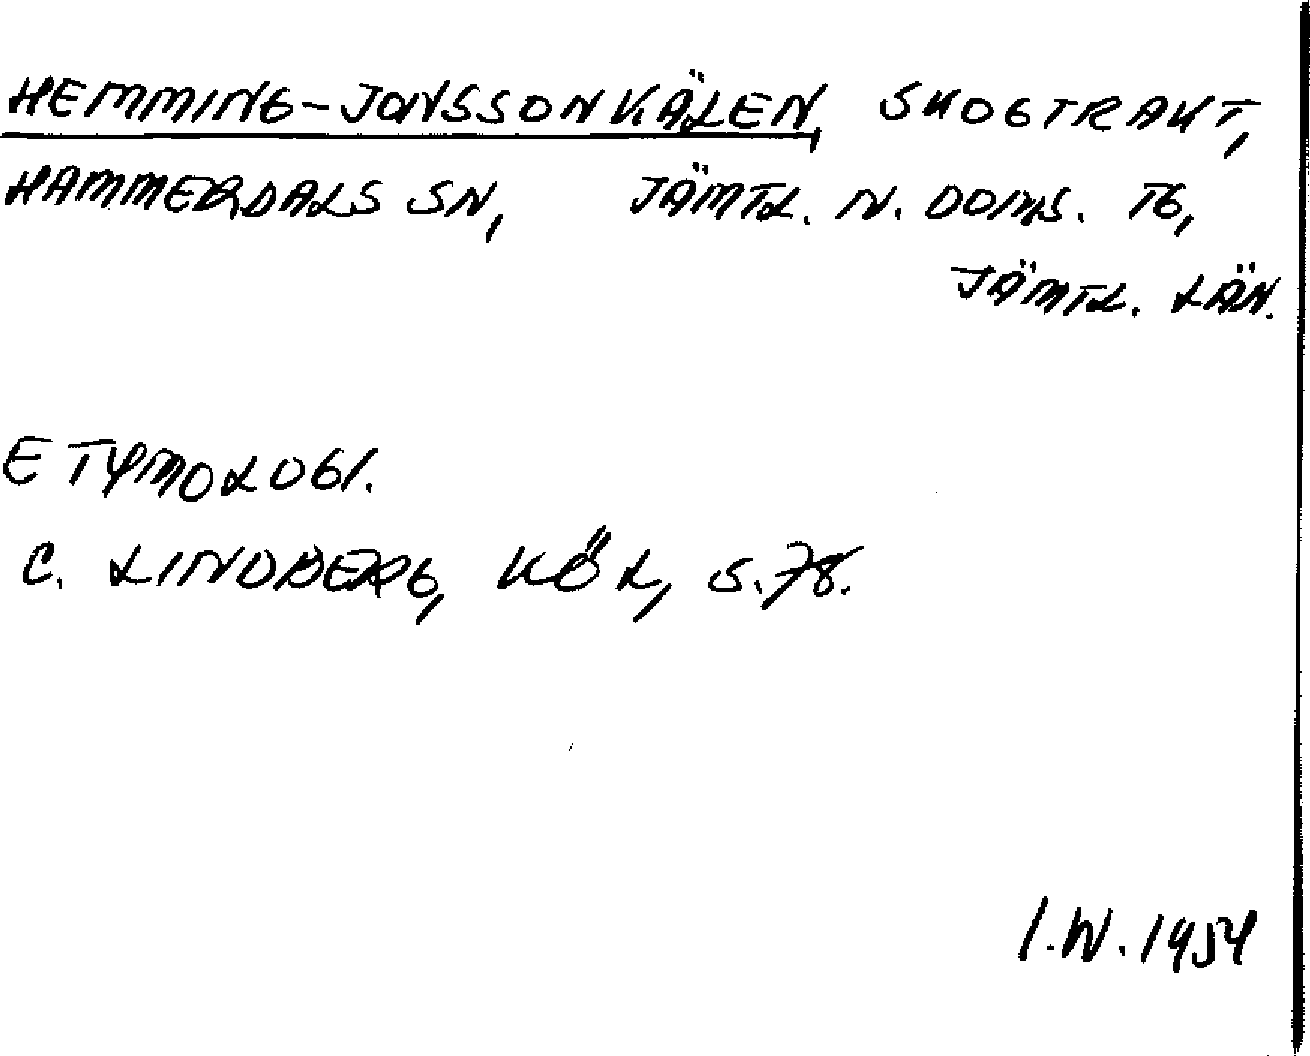 HEMMING-JONSSONKÄLEN, SKOGTRAKT,
HAMMERDALS SN, JÄMTL. N. DOMS. TG,
JÄMTL. LÄN.
ETYMOLOGI.
C. LINDBERG, KÖL, S. 78.
I.W. 1954